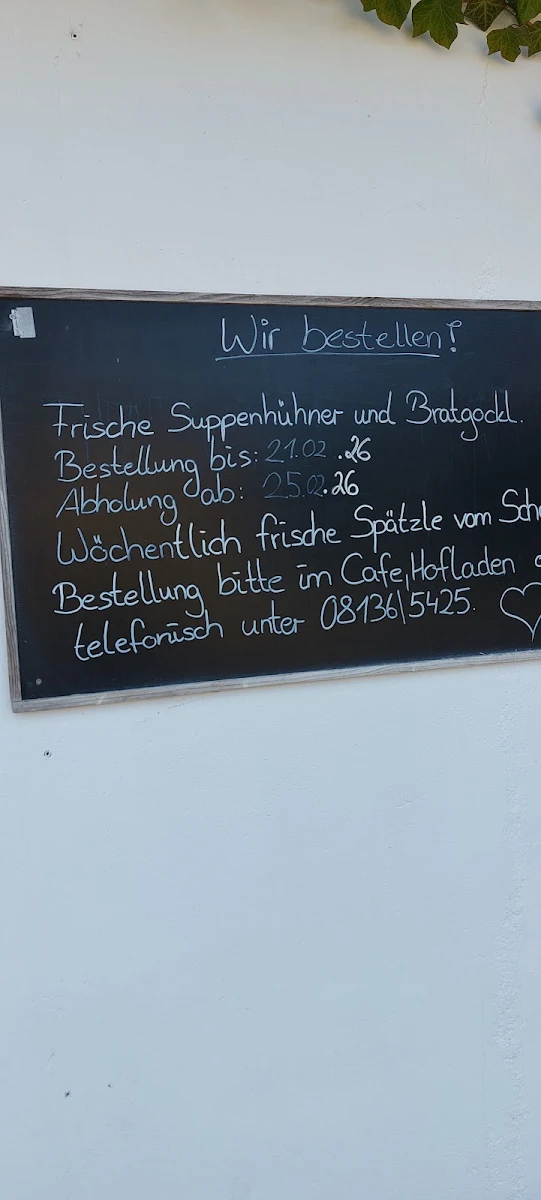 Wir bestellen!
Frische Suppenhühner und Bratgockl.
Bestellung bis: 21.02.26
Abholung ab: 25.02.26
Wöchentlich frische Spätzle vom
Bestellung bitte im Cafe, Hofladen
telefonisch unter 08136\5425.